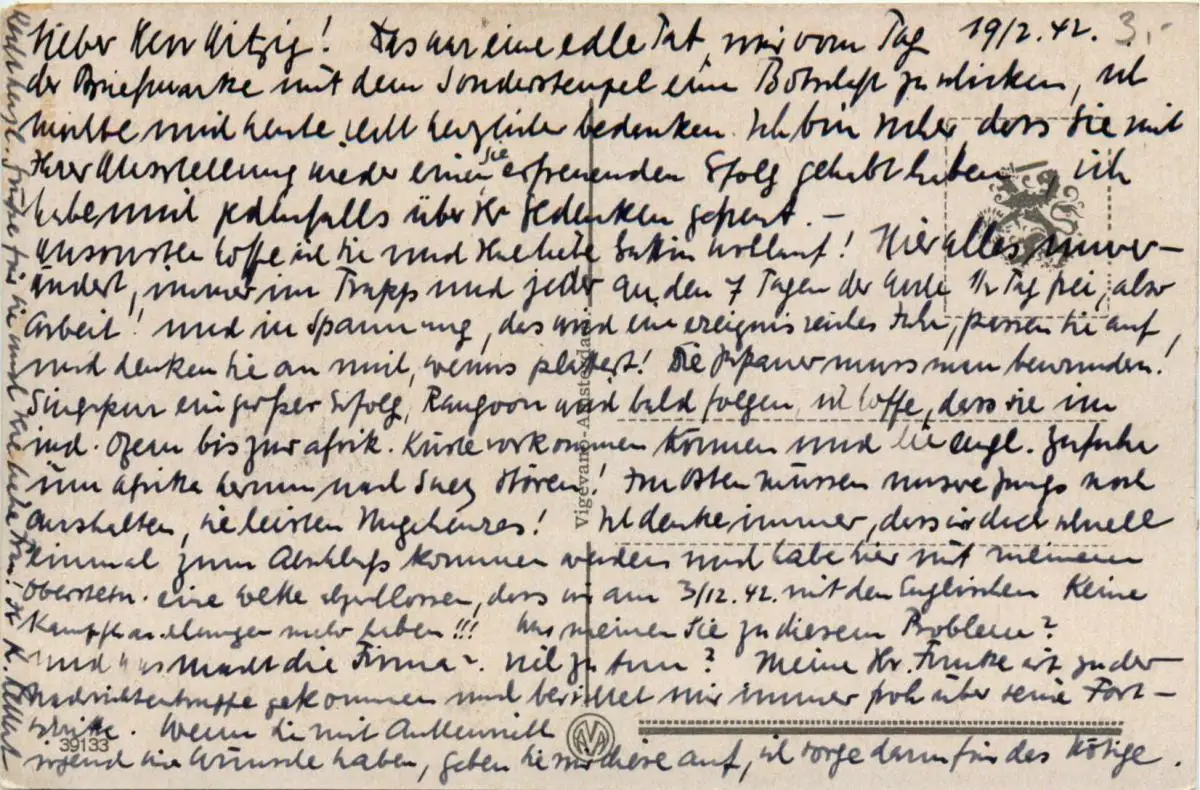 Lieber Herr Hitzig! Das war eine edle Tat, mir vom Tag 19/2.42. 3.-
der Briefmarke mit dem Sonderstempel eine Botschaft zu schicken, ich
möchte mich heute recht herzlich bedanken. Ich bin sicher dass Sie mit
Ihrer Ausstellung wieder einen Sie erfreuenden Erfolg gehabt haben ich
habe mich jedenfalls über Ihr Gedenken gefreut. –
Ansonsten hoffe ich Sie und Ihre liebe Gattin wohlauf! Hier alles unver-
ändert, immer im Trapp und jeder an den 7 Tagen der Woche 1/2 Tag frei, also
Arbeit! und in Spannung, das wird ein ereignisreiches Jahr, passen Sie auf,
und denken Sie an mich, wenns plattert! Die Japaner muss man bewundern!
Singapur ein großer Erfolg, Rangoon wird bald folgen, ich hoffe, dass sie im
ind. Ozean bis zur afrik. Küste vorkommen können und die engl. Zufuhr
um Afrika herum nach Suez stören! Im Osten müssen unsre Jungs noch
aushalten, sie leisten Ungeheures! Ich denke immer, dass wir doch schnell
einmal zum Abschluss kommen werden und habe hier mit meinem
Oberstltn. eine Wette abgeschlossen, dass wir am 3/12.42. mit den Engländern keine
Kampfhandlungen mehr haben!!! Was meinen Sie zu diesem Problem?
Und was macht die Firma? viel zu tun? Mein Hr. Funke ist zu der
Nachrichtentruppe gekommen und berichtet mir immer froh über seine Fort-
schritte. Wenn Sie mit
irgend wie Wünsche haben, geben Sie mir diese auf, ich sorge dann für das Nötige.
Herzlichst. Grüße für Sie und Ihre liebe Frau! Ihr K.
Vigevano - Amsterdam
39133